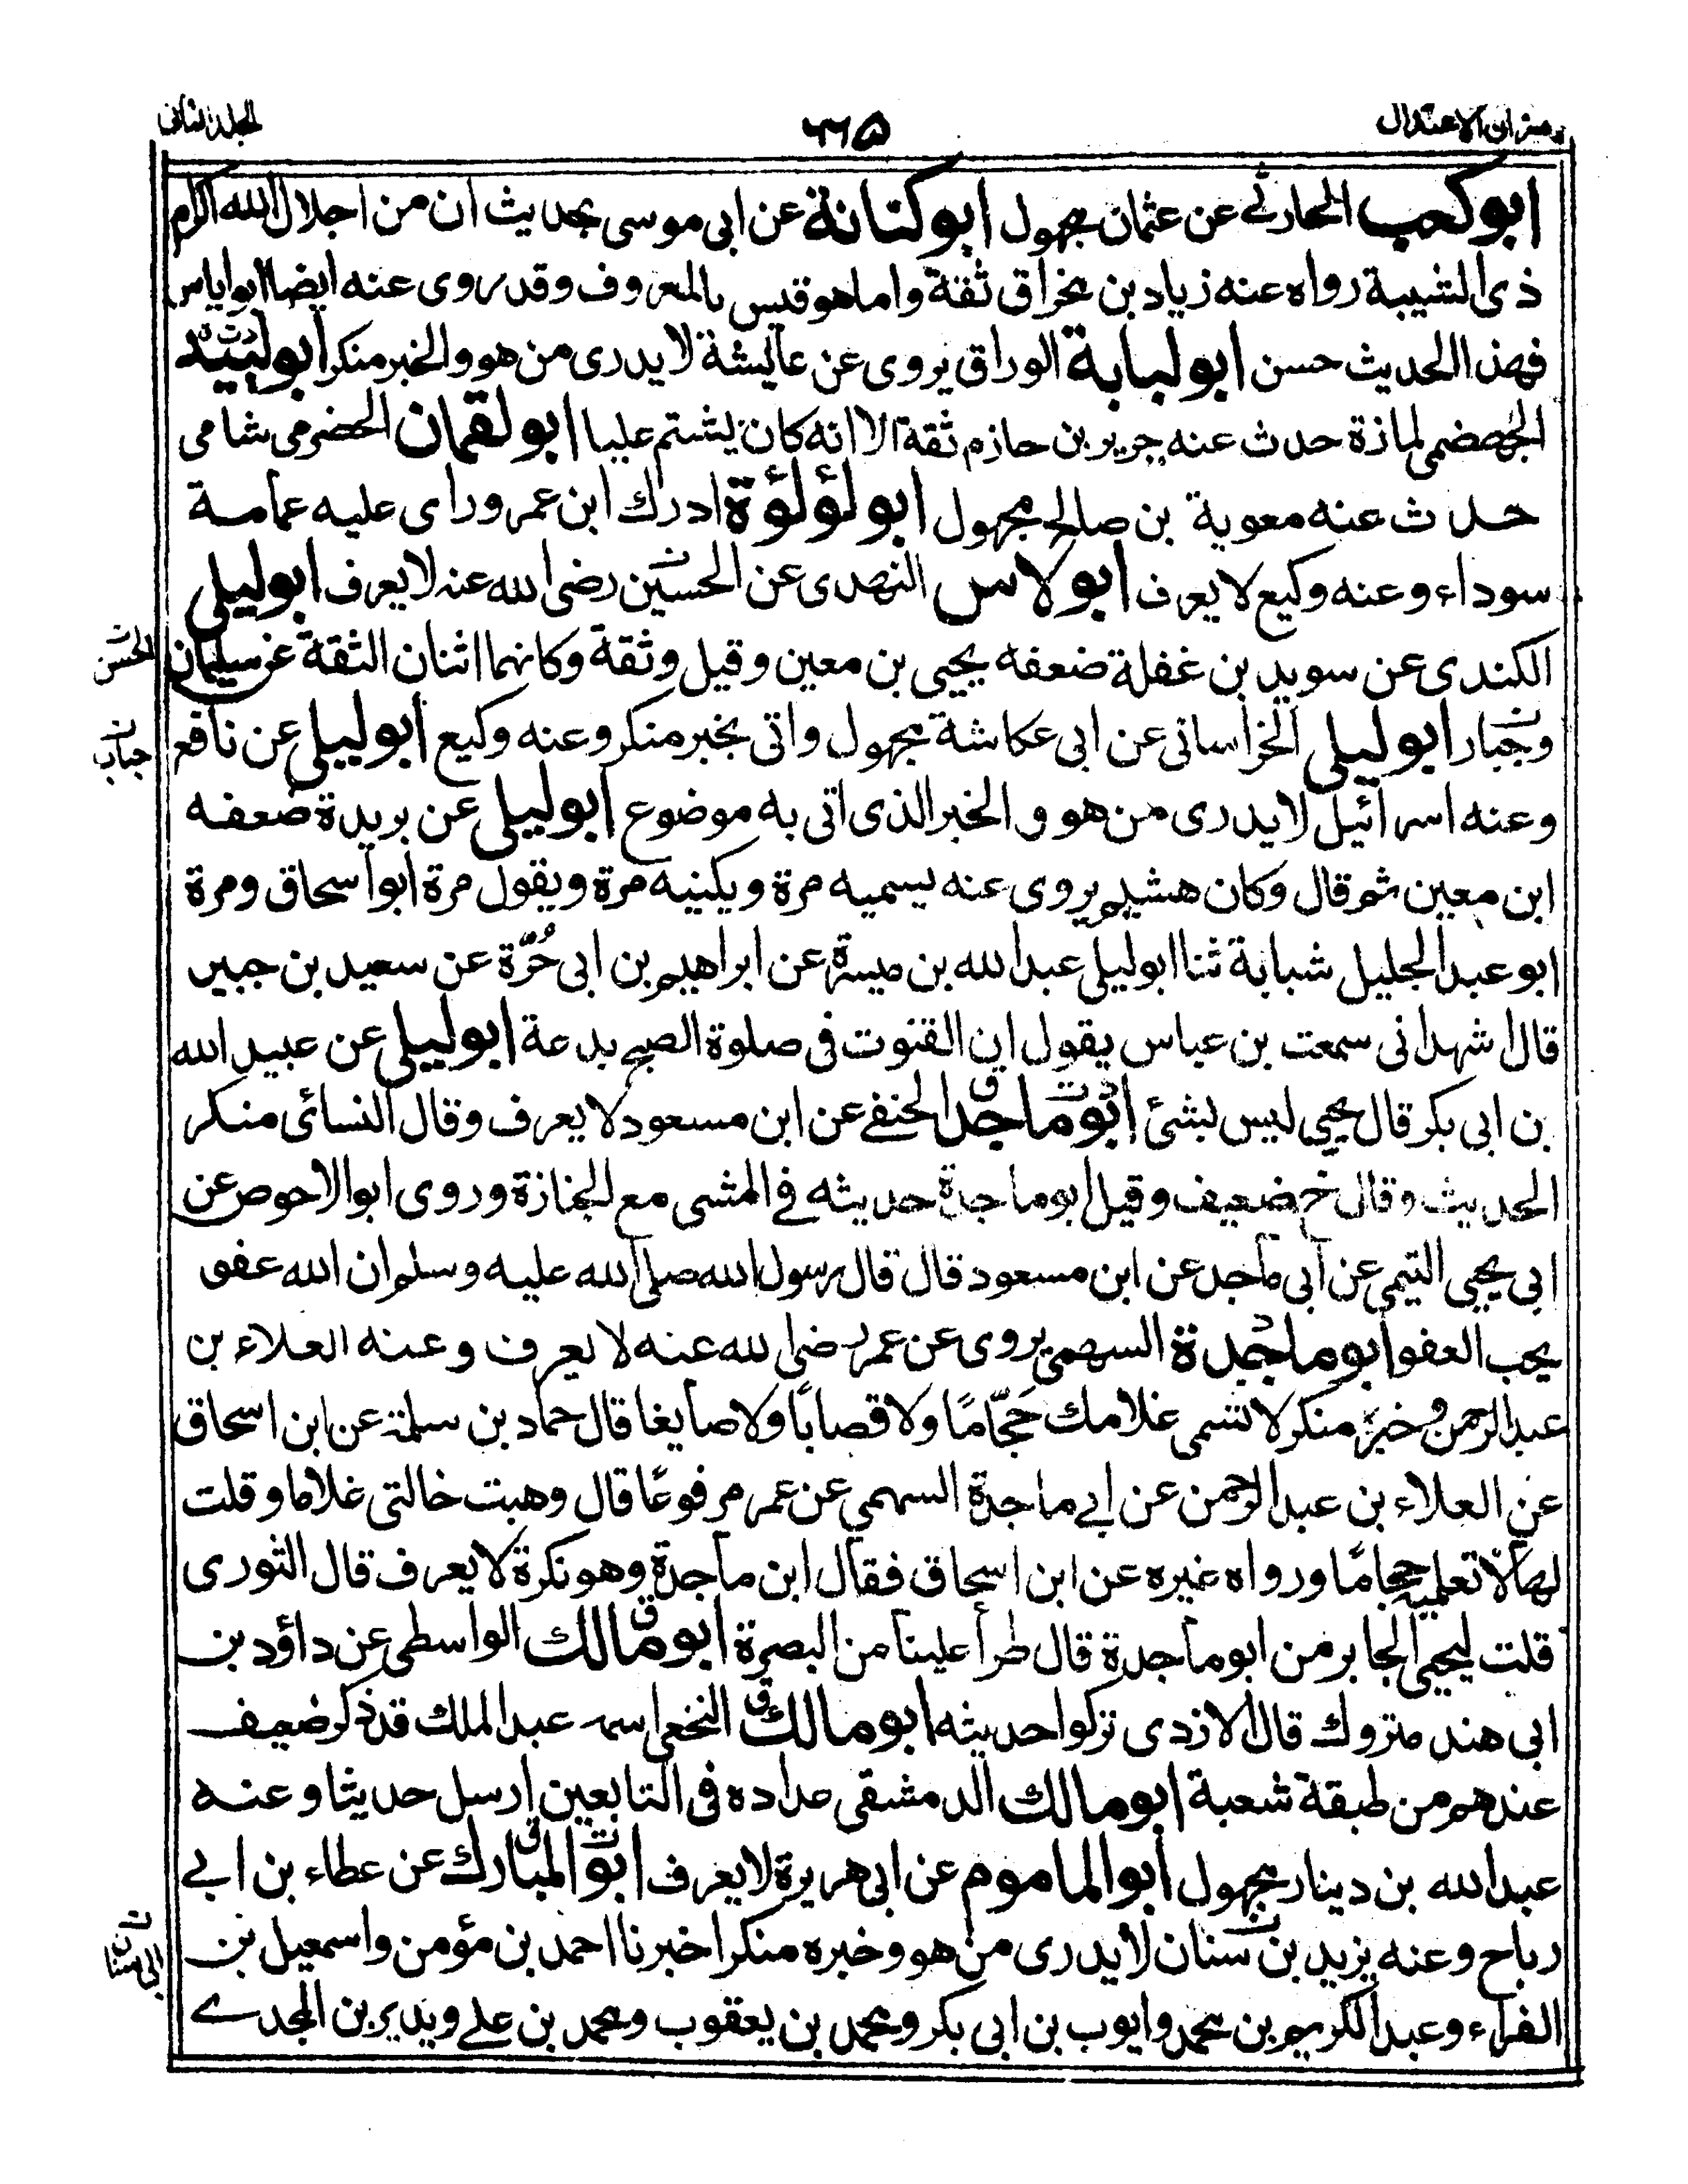 ميزان الاعتدال
٦٦٥
الجلد الثانى
ابو كعب الحارثے عن عثمان مجهول ابو كنانة عن ابى موسى بحديث ان من اجلال الله اكرام
ذى الشيبة رواه عنه زياد بن مخراق ثقة واما هو قيس بالمعروف وقد روى عنه ايضا ابو اياس
فهذا الحديث حسن ابو لبابة الوراق يروى عن عائشة لا يدرى من هو والخبر منكر ابو لبيد
الجهضمى لمازة حدث عنه جرير بن حازم ثقة الا انه كان يشتم عليا ابو لقمان الحضرمى شامى
حدث عنه معوية بن صالح مجهول ابو لؤلؤة ادرك ابن عمر وراى عليه عمامة
سوداء وعنه وكيع لا يعرف ابو لاس النهدى عن الحسين رضى الله عنه لا يعرف ابو ليلى
الكندى عن سويد بن غفلة ضعفه يحيى بن معين وقيل وثقة وكانهما اثنان الثقة عن سليمان
الحسن
وجبار ابو ليلى الخراسانى عن ابى عكاشة مجهول واتى بخبر منكر وعنه وكيع ابو ليلى عن نافع
وعنه اسرائيل لا يدرى من هو و الخبر الذى اتى به موضوع ابو ليلى عن بريدة ضعفه
ابن معين ثم قال وكان هشيم يروى عنه يسميه مرة ويكنيه مرة ويقول مرة ابو اسحاق ومرة
ابو عبد الجليل شبابة ثنا ابو ليلى عبد الله بن ميسرة عن ابراهيم بن ابى حُرّة عن سعيد بن جبير
قال اشهد انى سمعت بن عباس يقول ان القنوت فى صلوة الصبح بدعة ابو ليلى عن عبيد الله
بن ابى بكر قال يحيى ليس بشئ ابو ماجد الحنفے عن ابن مسعود لا يعرف وقال النسائى منكر
الحديث وقال خ ضعيف وقيل ابو ماجدة حديثه فے المشى مع الجنازة وروى ابو الاحوص عن
ابى يحيى التيمى عن ابى ماجد عن ابن مسعود قال قال رسول الله صلى الله عليه وسلم ان الله عفو
يحب العفو ابو ماجدة السهمى يروى عن عمر رضى الله عنه لا يعرف وعنه العلاء بن
عبد الرحمن وخبره منكر لا تسمى غلامك حَجّامًا ولا قصابًا ولا صايغا قال حماد بن سلمة عن ابن اسحاق
عن العلاء بن عبد الرحمن عن ابے ماجدة السهمي عن عمر مرفوعًا قال وهبت خالتى غلاما وقلت
لها لا تعلميه حجامًا ورواه غيره عن ابن اسحاق فقال ابن ماجدة وهو نكرة لا يعرف قال الثورى
قلت ليحيى الجابر من ابو ماجدة قال طرأ علينا من البصرة ابو مالك الواسطى عن داؤد بن
ابى هند متروك قال الازدى تركوا حديثه ابو مالك النخعى اسمه عبد الملك قد ذكر ضعيف
عندهم من طبقة شعبة ابو مالك الدمشقى عداده فى التابعين ارسل حديثا وعنه
عبد الله بن دينار مجهول ابو الماموم عن ابى هريرة لا يعرف ابو المبارك عن عطاء بن ابے
رباح وعنه يزيد بن سنان لا يدرى من هو وخبره منكر اخبرنا احمد بن مؤمن واسمعيل بن
الفراء وعبد الكريم بن محمد وايوب بن ابى بكر ومحمد بن يعقوب ومحمد بن علے وبدير بن المجدے